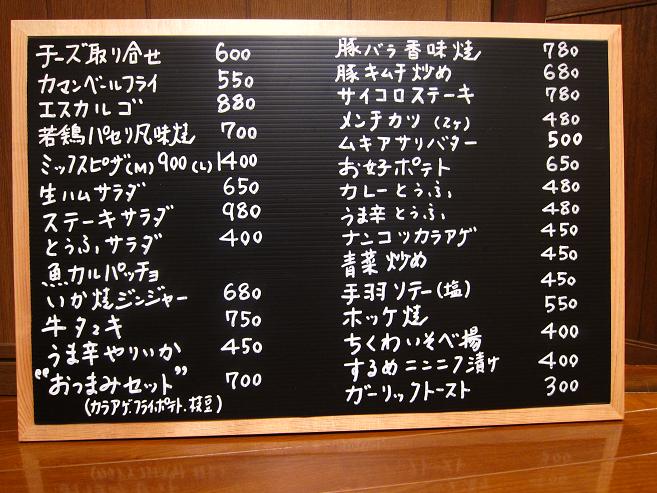 チーズ取り合せ 600
カマンベールフライ 550
エスカルゴ 880
若鶏パセリ風味焼 700
ミックスピザ(M)900(L)1400
生ハムサラダ 650
ステーキサラダ 980
とうふサラダ 400
魚カルパッチョ
いか焼ジンジャー 680
牛タタキ 750
うま辛やりいか 450
“おつまみセット” 700
(カラアゲ.フライポテト.枝豆)
豚バラ香味焼 780
豚キムチ炒め 680
サイコロステーキ 780
メンチカツ(2ヶ) 480
ムキアサリバター 500
お好ポテト 650
カレーとうふ 480
うま辛とうふ 480
ナンコツカラアゲ 450
青菜炒め 450
手羽ソテー(塩) 450
ホッケ焼 550
ちくわいそべ揚 400
するめニンニク漬け 400
ガーリックトースト 300